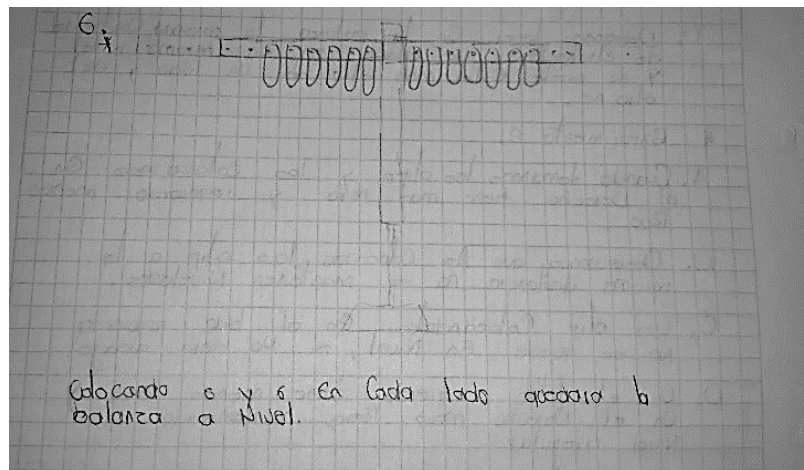 6.
Colocando 6 y 6 En Cada lado quedara la
balanza a Nivel.